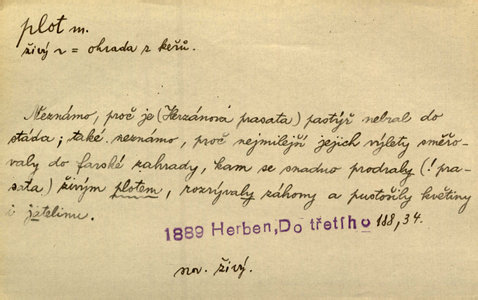 plot m.
živý ~ = ohrada z keřů.
Neznámo, proč je (Herzánová prasata) pastýř nebral do
stáda; také neznámo, proč nejmilejší jejich výlety směřo-
valy do farské zahrady, kam se snadno prodraly (! pra-
sata) živým plotem, rozrývaly záhony a pustošily květiny
i jatelinu.
1889 Herben, Do třetího 188, 34.
nov. živý.